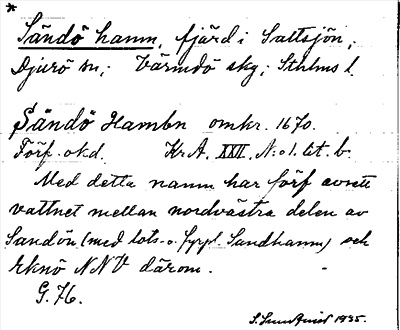 *
Sändö hamn, fjärd i Saltsjön,
Djurö sn; Värmdö skg; Sthlms l.
Sändö Hambn omkr. 1670.
Förf. okd. Kr A. XXII. N:o 1. lit. b.
Med detta namn har förf avsett
vattnet mellan nordvästra delen av
Sandön (med lots- o. fyrpl. Sandhamn) och
Eknö NNV därom.
G. 76.
1935.